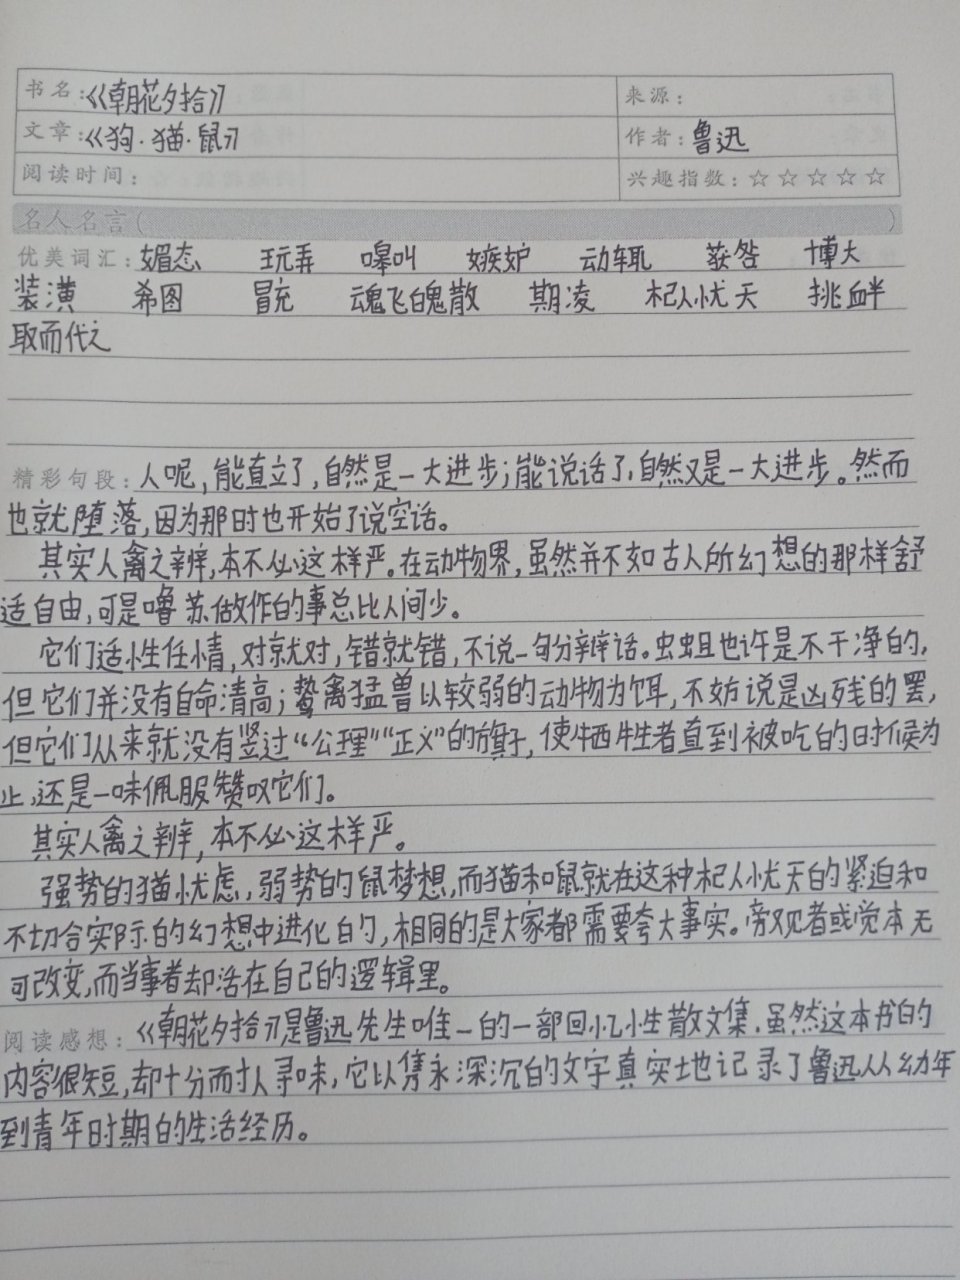 书名:《朝花夕拾》 来源:
文章:《狗·猫·鼠》 作者:鲁迅
阅读时间: 兴趣指数:☆☆☆☆☆
名人名言( )
优美词汇:媚态 玩弄 嗥叫 嫉妒 动辄 获咎 博大
装潢 希图 冒充 魂飞魄散 期凌 杞人忧天 挑衅
取而代之
精彩句段:人呢,能直立了,自然是一大进步;能说话了,自然又是一大进步。然而
也就堕落,因为那时也开始了说空话。
其实人禽之辨,本不必这样严。在动物界,虽然并不如古人所幻想的那样舒
适自由,可是噜苏做作的事总比人间少。
它们适性任情,对就对,错就错,不说一句分辩话。虫蛆也许是不干净的,
但它们并没有自命清高;鸷禽猛兽以较弱的动物为饵,不妨说是凶残的罢,
但它们从来就没有竖过“公理”“正义”的旗子,使牺牲者直到被吃的时候为
止,还是一味佩服赞叹它们。
其实人禽之辨,本不必这样严。
强势的猫忧虑,弱势的鼠梦想,而猫和鼠就在这种杞人忧天的紧迫和
不切合实际的幻想中进化的,相同的是大家都需要夸大事实。旁观者或觉本无
可改变,而当事者却活在自己的逻辑里。
阅读感想:《朝花夕拾》是鲁迅先生唯一的一部回忆性散文集,虽然这本书的
内容很短,却十分耐人寻味,它以隽永深沉的文字真实地记录了鲁迅从幼年
到青年时期的生活经历。